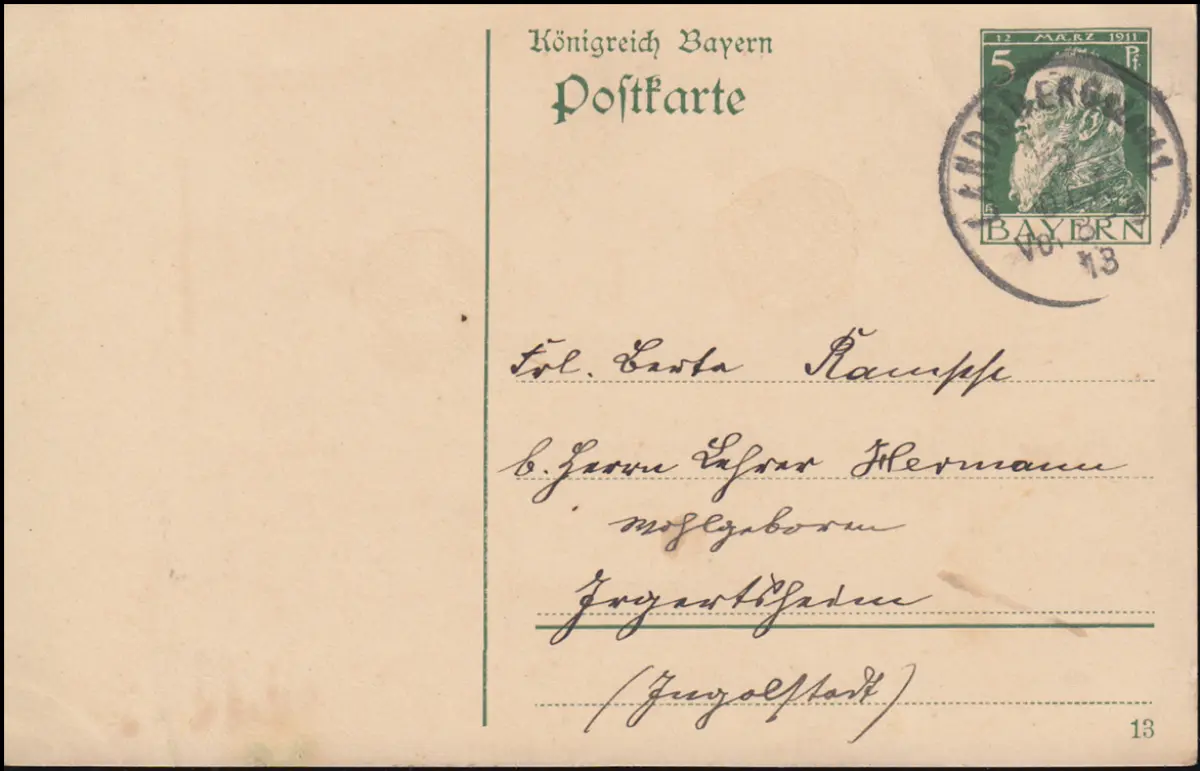 Königreich Bayern
Postkarte
12 MÆRZ 1911
5 Pf.
BAYERN
LANDSBERG
Vor. 8
13
Frl. Berta
b. Herrn Lehrer Hermann
wohlgeboren
Irgertsheim
(Ingolstadt)
13